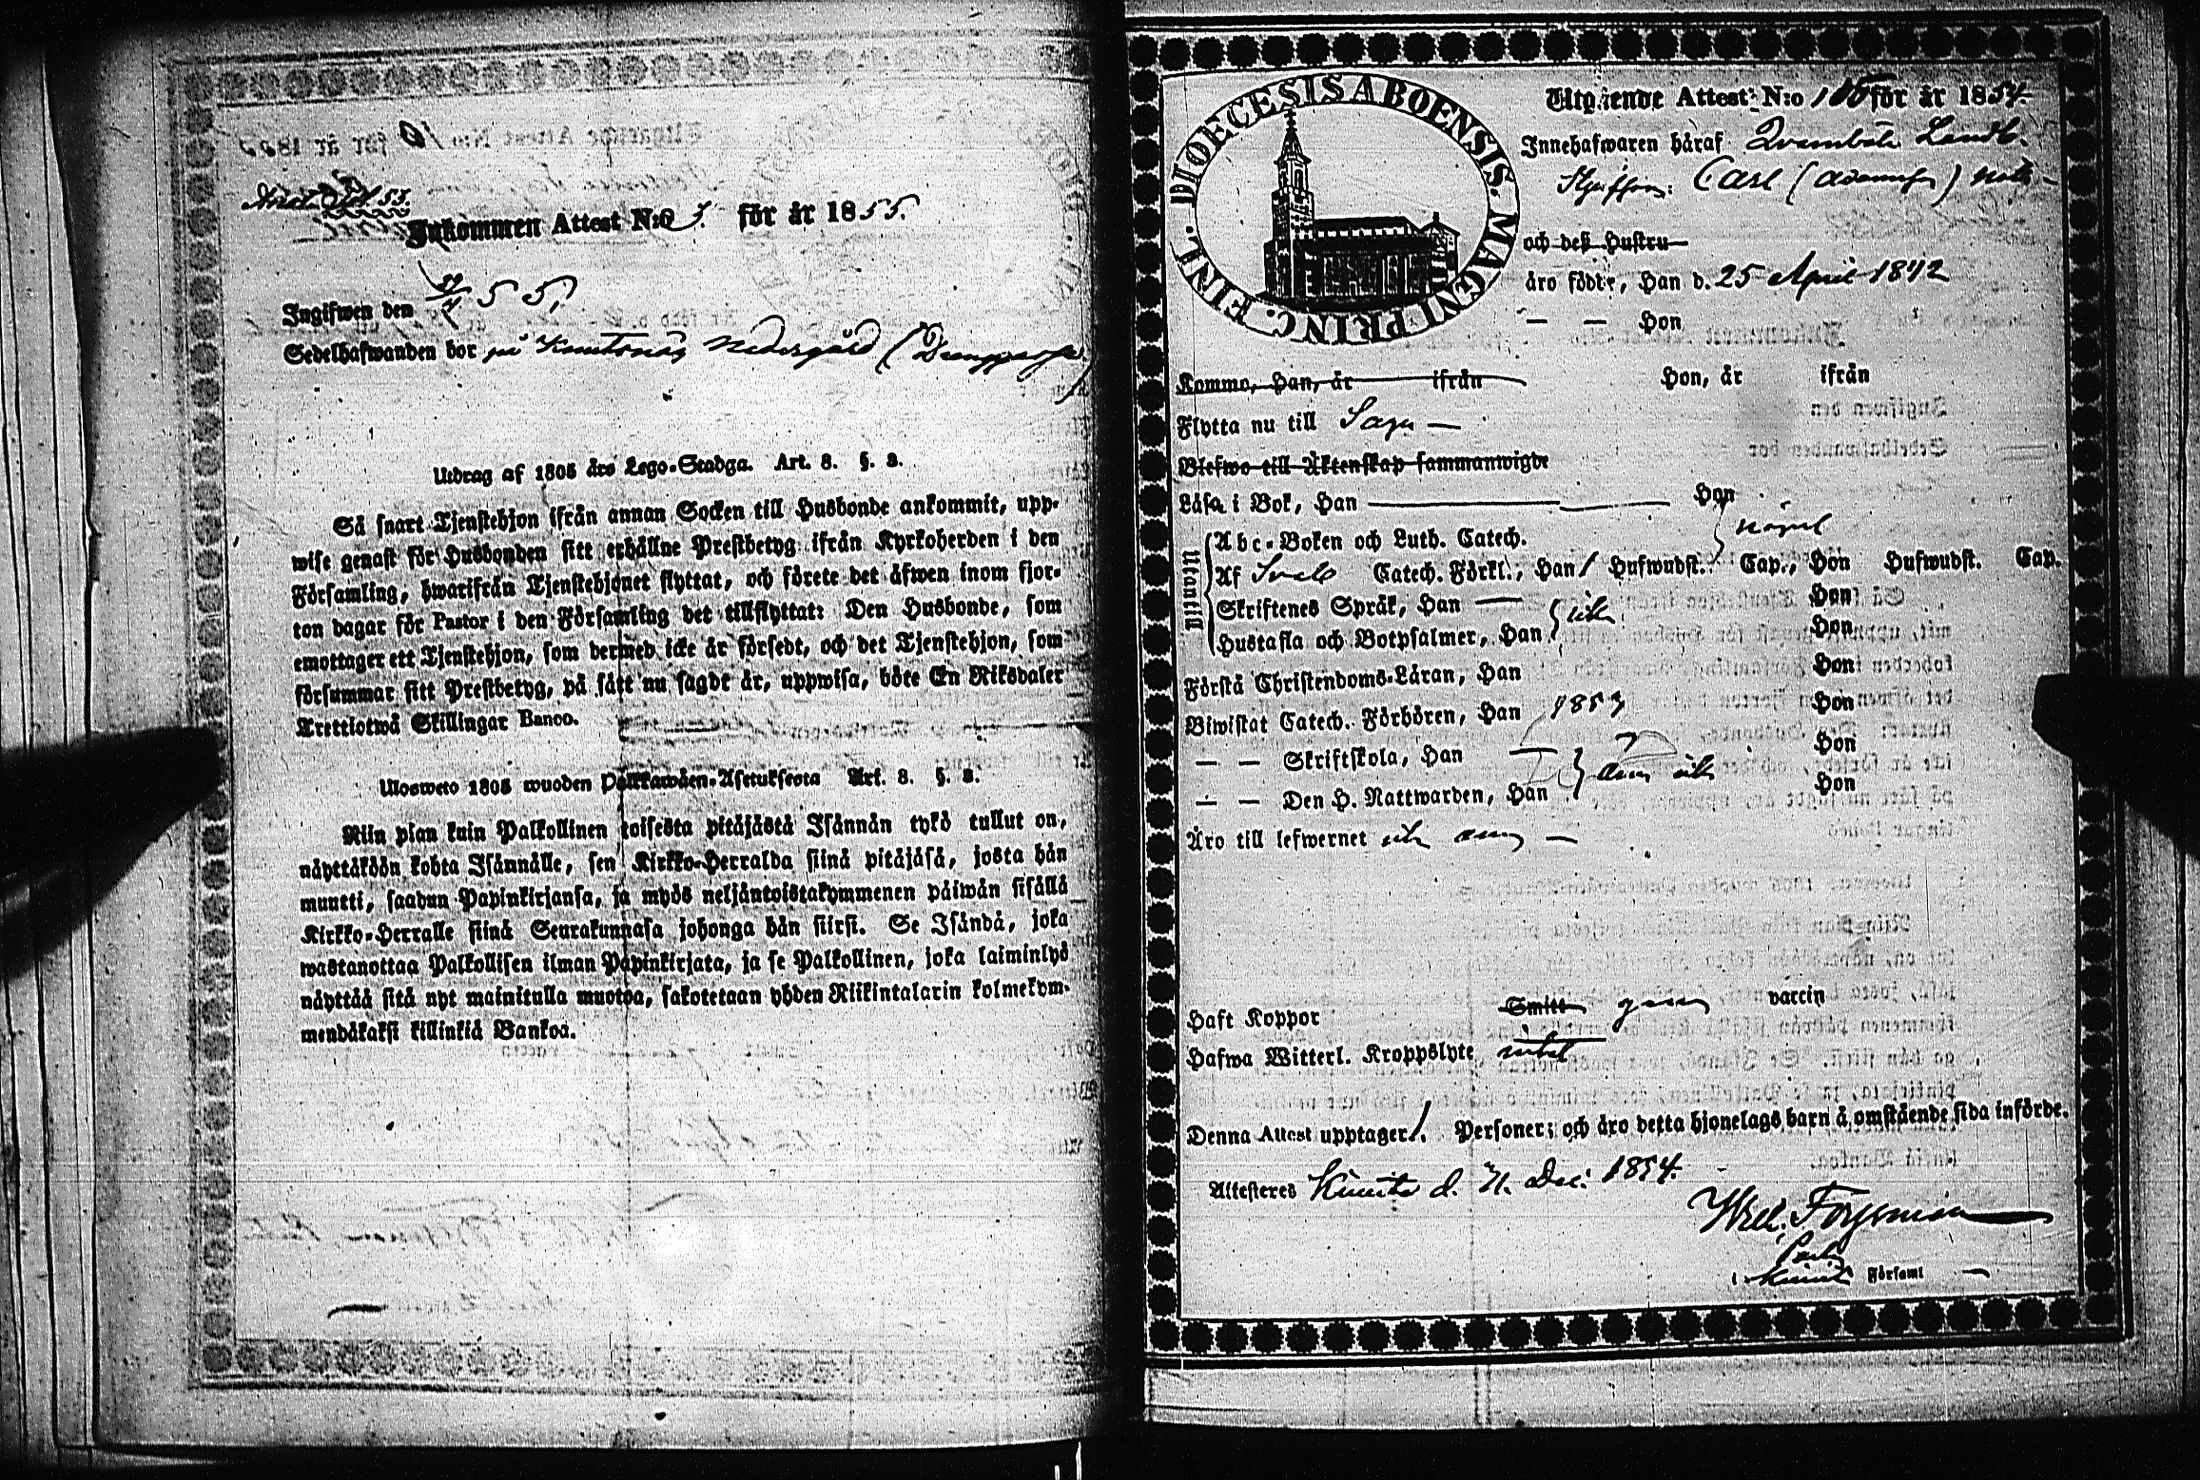 Inkommen Attest N:o 3. för år 1855.
Ingifwen den 29/4 55,
Sedelhafwanden bor på Nedergård
Utdrag af 1805 års Lego-Stadga. Art. 8. §. 3.
Så snart Tjenstehjon ifrån annan Socken till Husbonde ankommit, upp-
wise genast för Husbonden sitt erhållne Prestbetyg ifrån Kyrkoherden i den
Församling, hwarifrån Tjenstehjonet flyttat, och förete det äfwen inom fjor-
ton dagar för Pastor i den Församling det tillflyttat: Den Husbonde, som
emottager ett Tjenstehjon, som dermed icke är försedt, och det Tjenstehjon, som
försummar sitt Prestbetyg, på sätt nu sagdt är, uppwisa, böte En Riksdaler
Trettiotwå Skillingar Banco.
Ulosweto 1805 wuoden Palkkawäen-Asetuksesta Art. 8. §. 3.
Niin pian kuin Palkollinen toisesta pitäjästä Isännän tykö tullut on,
näyttäköön kohta Isännälle, sen Kirkko-Herralda siinä pitäjäsä, josta hän
muutti, saadun Papinkirjansa, ja myös neljäntoistakymmenen päiwän sisällä
Kirkko-Herralle siinä Seurakunnasa johonga hän siirsi. Se Isändä, joka
wastanottaa Palkollisen ilman Papinkirjata, ja se Palkollinen, joka laiminlyö
näyttää sitä nyt mainitulla muotoa, sakotetaan yhden Riikintalarin kolmekym-
mendäkaksi killinkiä Bankoa.
DIOECESIS ABOENSIS. MAGNI PRINC. FINL.
Utgående Attest N:o för år 1854.
Innehafwaren häraf
Carl
och deß Hustru
äro födde, Han d. 25 April 1842
— — Hon
Kommo, Han, år ifrån Hon, år ifrån
Flytta nu till Sagu —
Blefwo till Äktenskap sammanwigde
Läsa i Bok, Han Hon
Utantill
Abc-Boken och Luth. Catech. något
Af Sveb. Catech. Förkl., Han 1 Hufwudst. Cap., Hon Hufwudst. Cap.
Skriftenes Språk, Han Hon
Hustafla och Botpsalmer, Han Hon
Förstå Christendoms-Läran, Han Hon
Biwistat Catech. Förhören, Han Hon
— — Skriftskola, Han Hon
— — Den H. Nattwarden, Han Hon
Äro till lefwernet
Haft Koppor Smitt genom vaccin
Hafwa Witterl. Kroppslyte intet
Denna Attest upptager 1. Personer; och äro detta hjonelags barn å omstående sida införde.
Attesteres Kimito d. 21. Dec. 1854.
i Kimito Församl